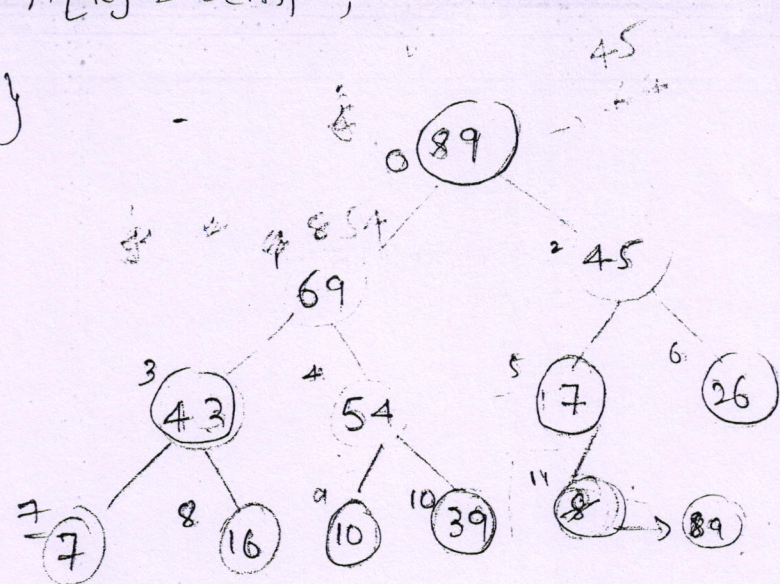 }
45
0 89
8 54
69
2 45
3 43
4 54
5 17
6 26
7 7
8 16
9 10
10 39
11 8
89